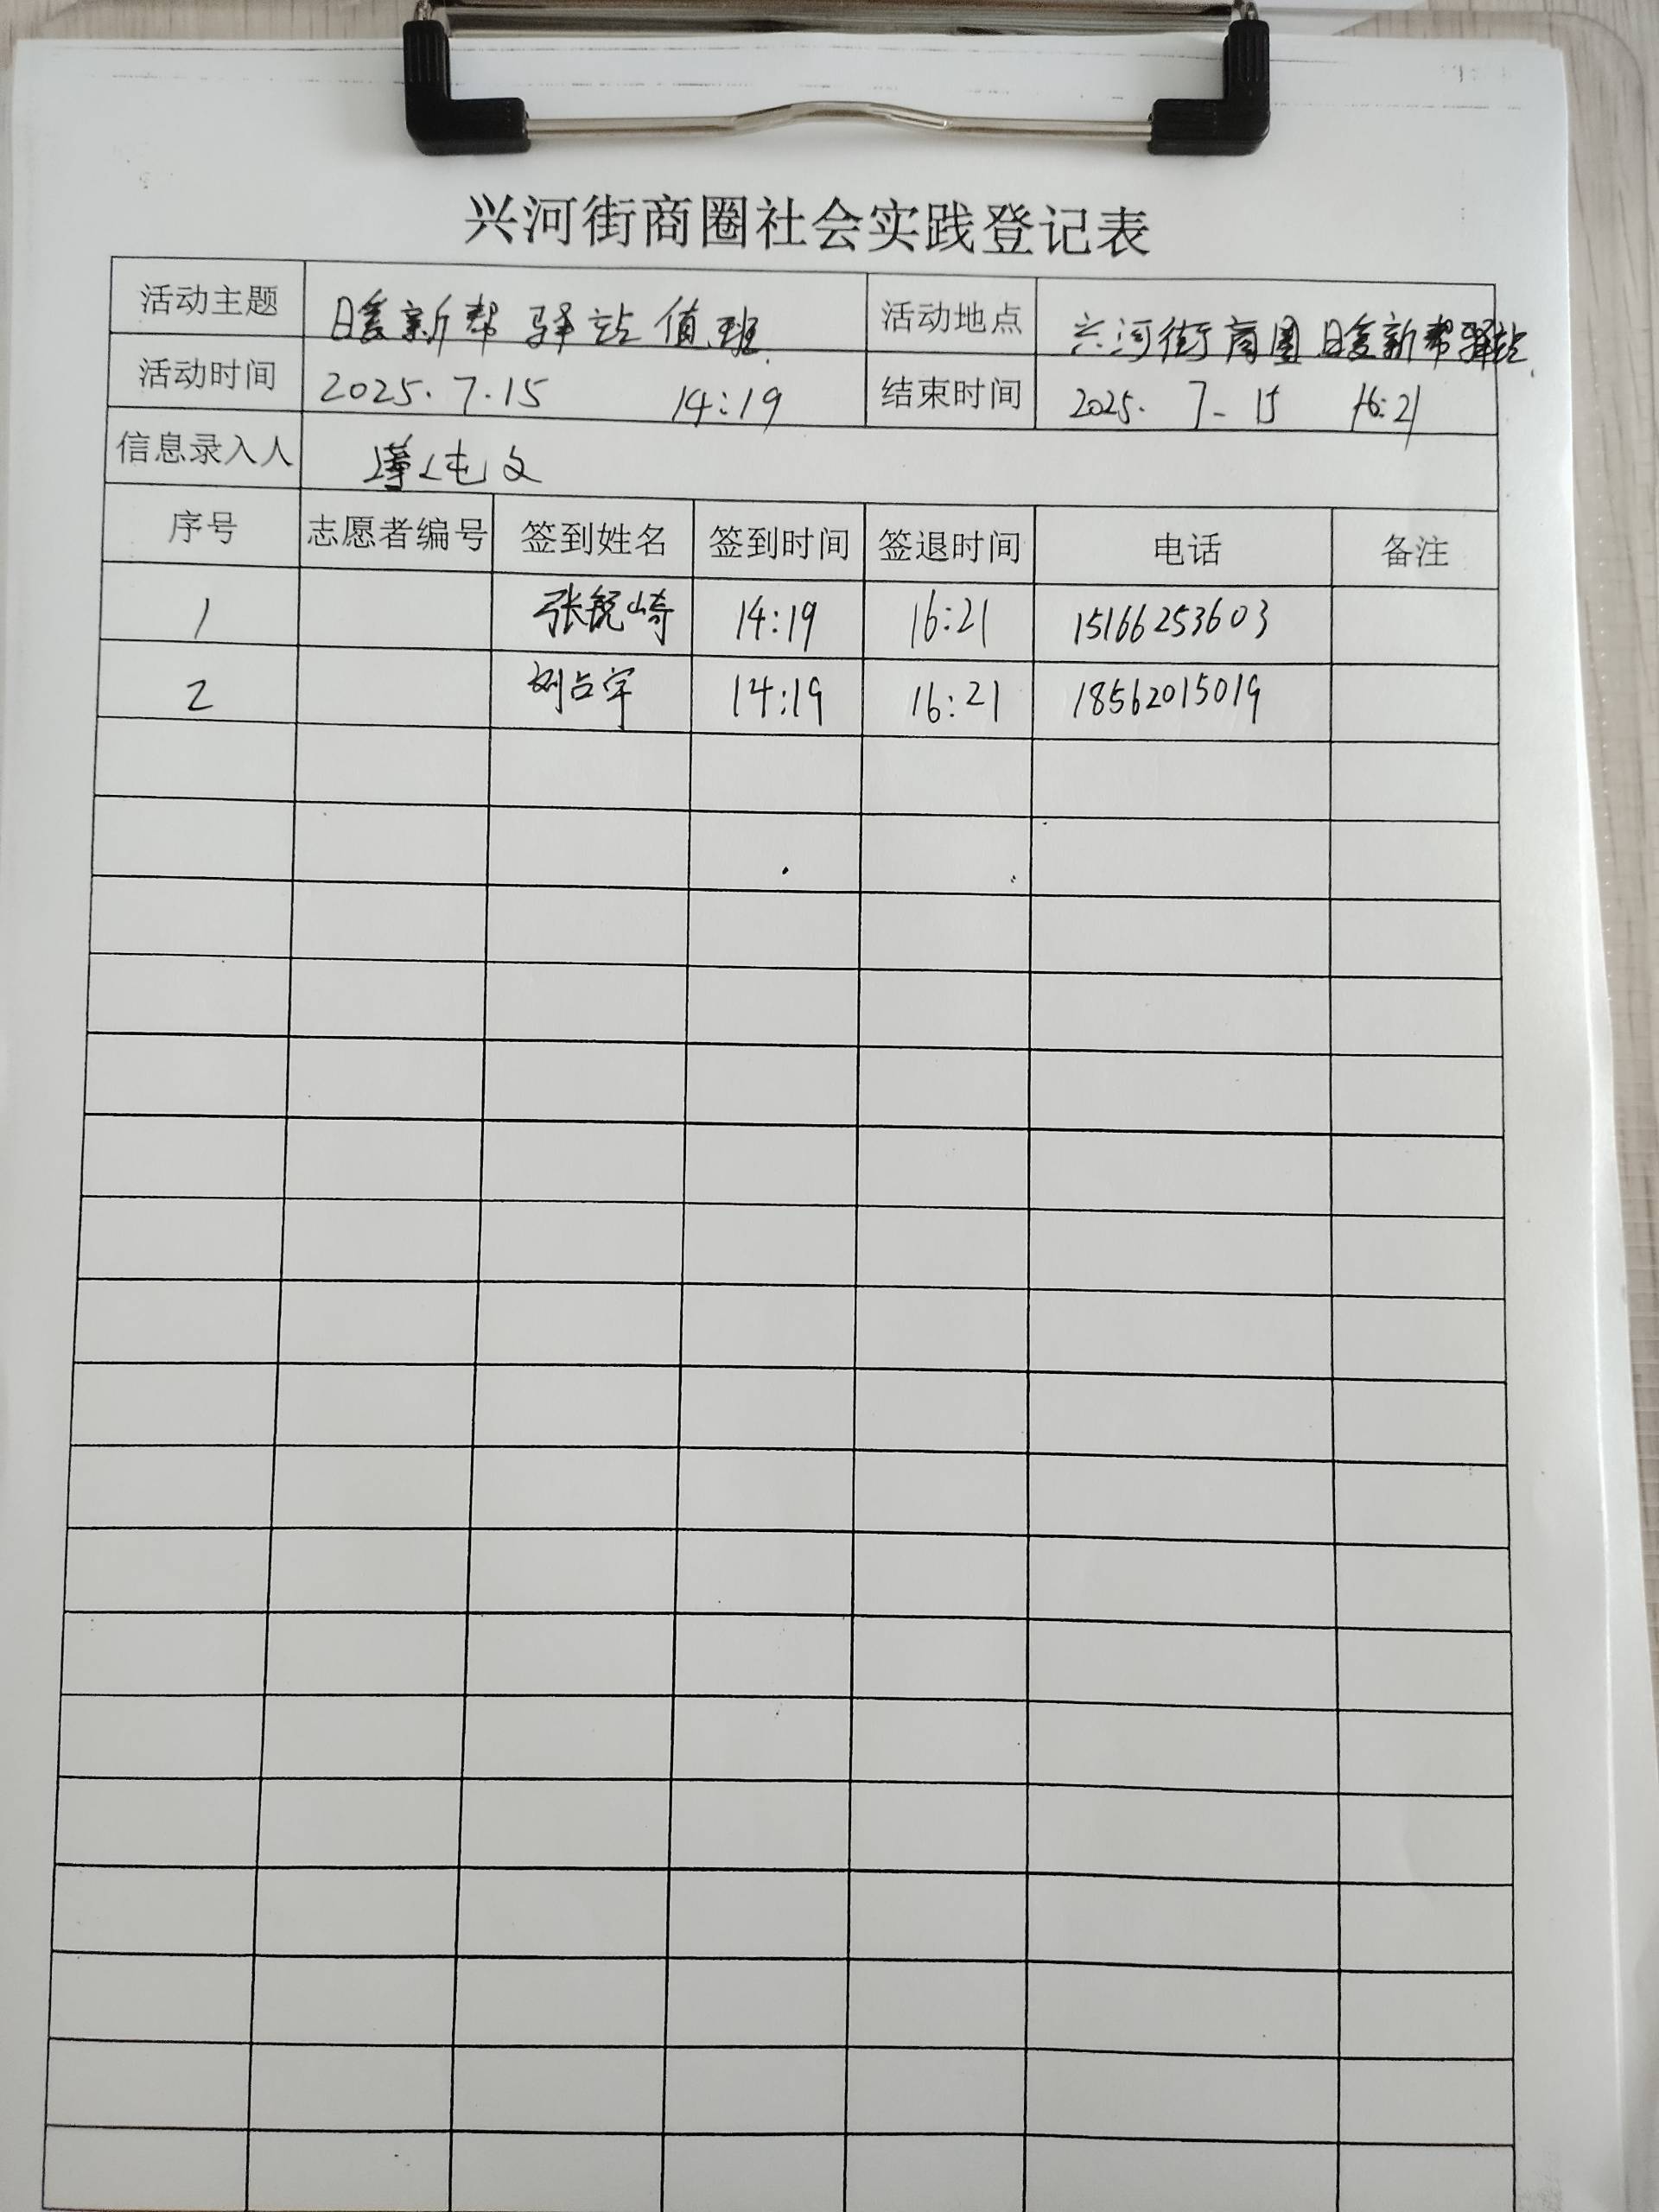 兴河街商圈社会实践登记表
活动主题 暖新帮驿站值班. 活动地点 兴河街商圈暖新帮驿站.
活动时间 2025.7.15 14:19 结束时间 2025. 7-15 16:21
信息录入人 文
序号 志愿者编号 签到姓名 签到时间 签退时间 电话 备注
1 张锐崎 14:19 16:21 15166253603
2 刘占宇 14:19 16:21 18562015019